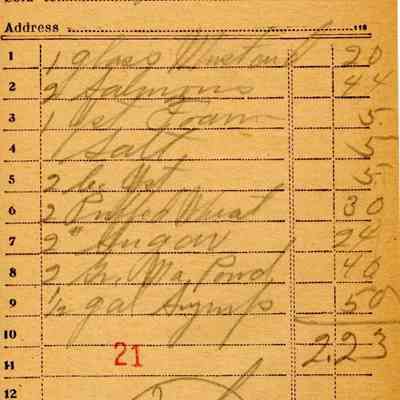 Address 118
1 1 glass Mustard 20
2 2 Salmons 44
3 1 Foam 5
4 Salt 5
5 2 5
6 2 Puffed Wheat 30
7 2 " Sugar 24
8 2 40
9 1/2 gal Syrup 50
10 2.23
11 21
12